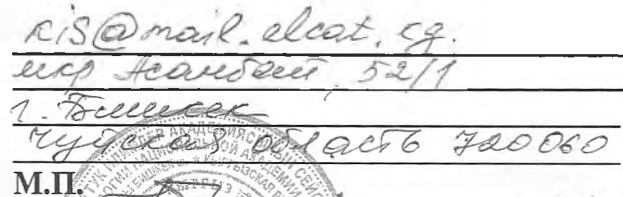 kis@mail.elcat.kg.
мкр Асанбай, 52/1
г. Бишкек
Чуйская область 720060
М.П.